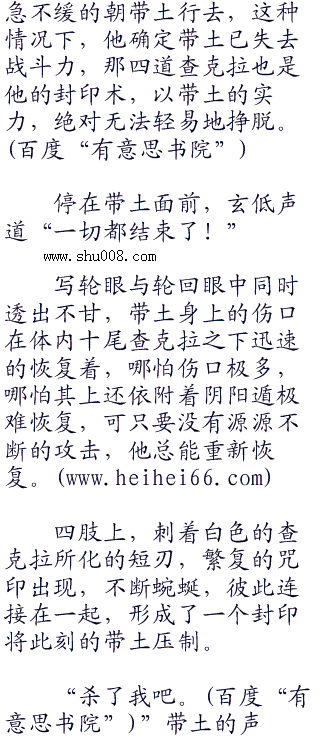 急不缓的朝带土行去，这种
情况下，他确定带土已失去
战斗力，那四道查克拉也是
他的封印术，以带土的实
力，绝对无法轻易地挣脱。
(百度“有意思书院”)
停在带土面前，玄低声
道“一切都结束了！”
www.shu008.com
写轮眼与轮回眼中同时
透出不甘，带土身上的伤口
在体内十尾查克拉之下迅速
的恢复着，哪怕伤口极多，
哪怕其上还依附着阴阳遁极
难恢复，可只要没有源源不
断的攻击，他总能重新恢
复。(www.heihei66.com)
四肢上，刺着白色的查
克拉所化的短刃，繁复的咒
印出现，不断蜿蜒，彼此连
接在一起，形成了一个封印
将此刻的带土压制。
“杀了我吧。(百度“有
意思书院”)”带土的声